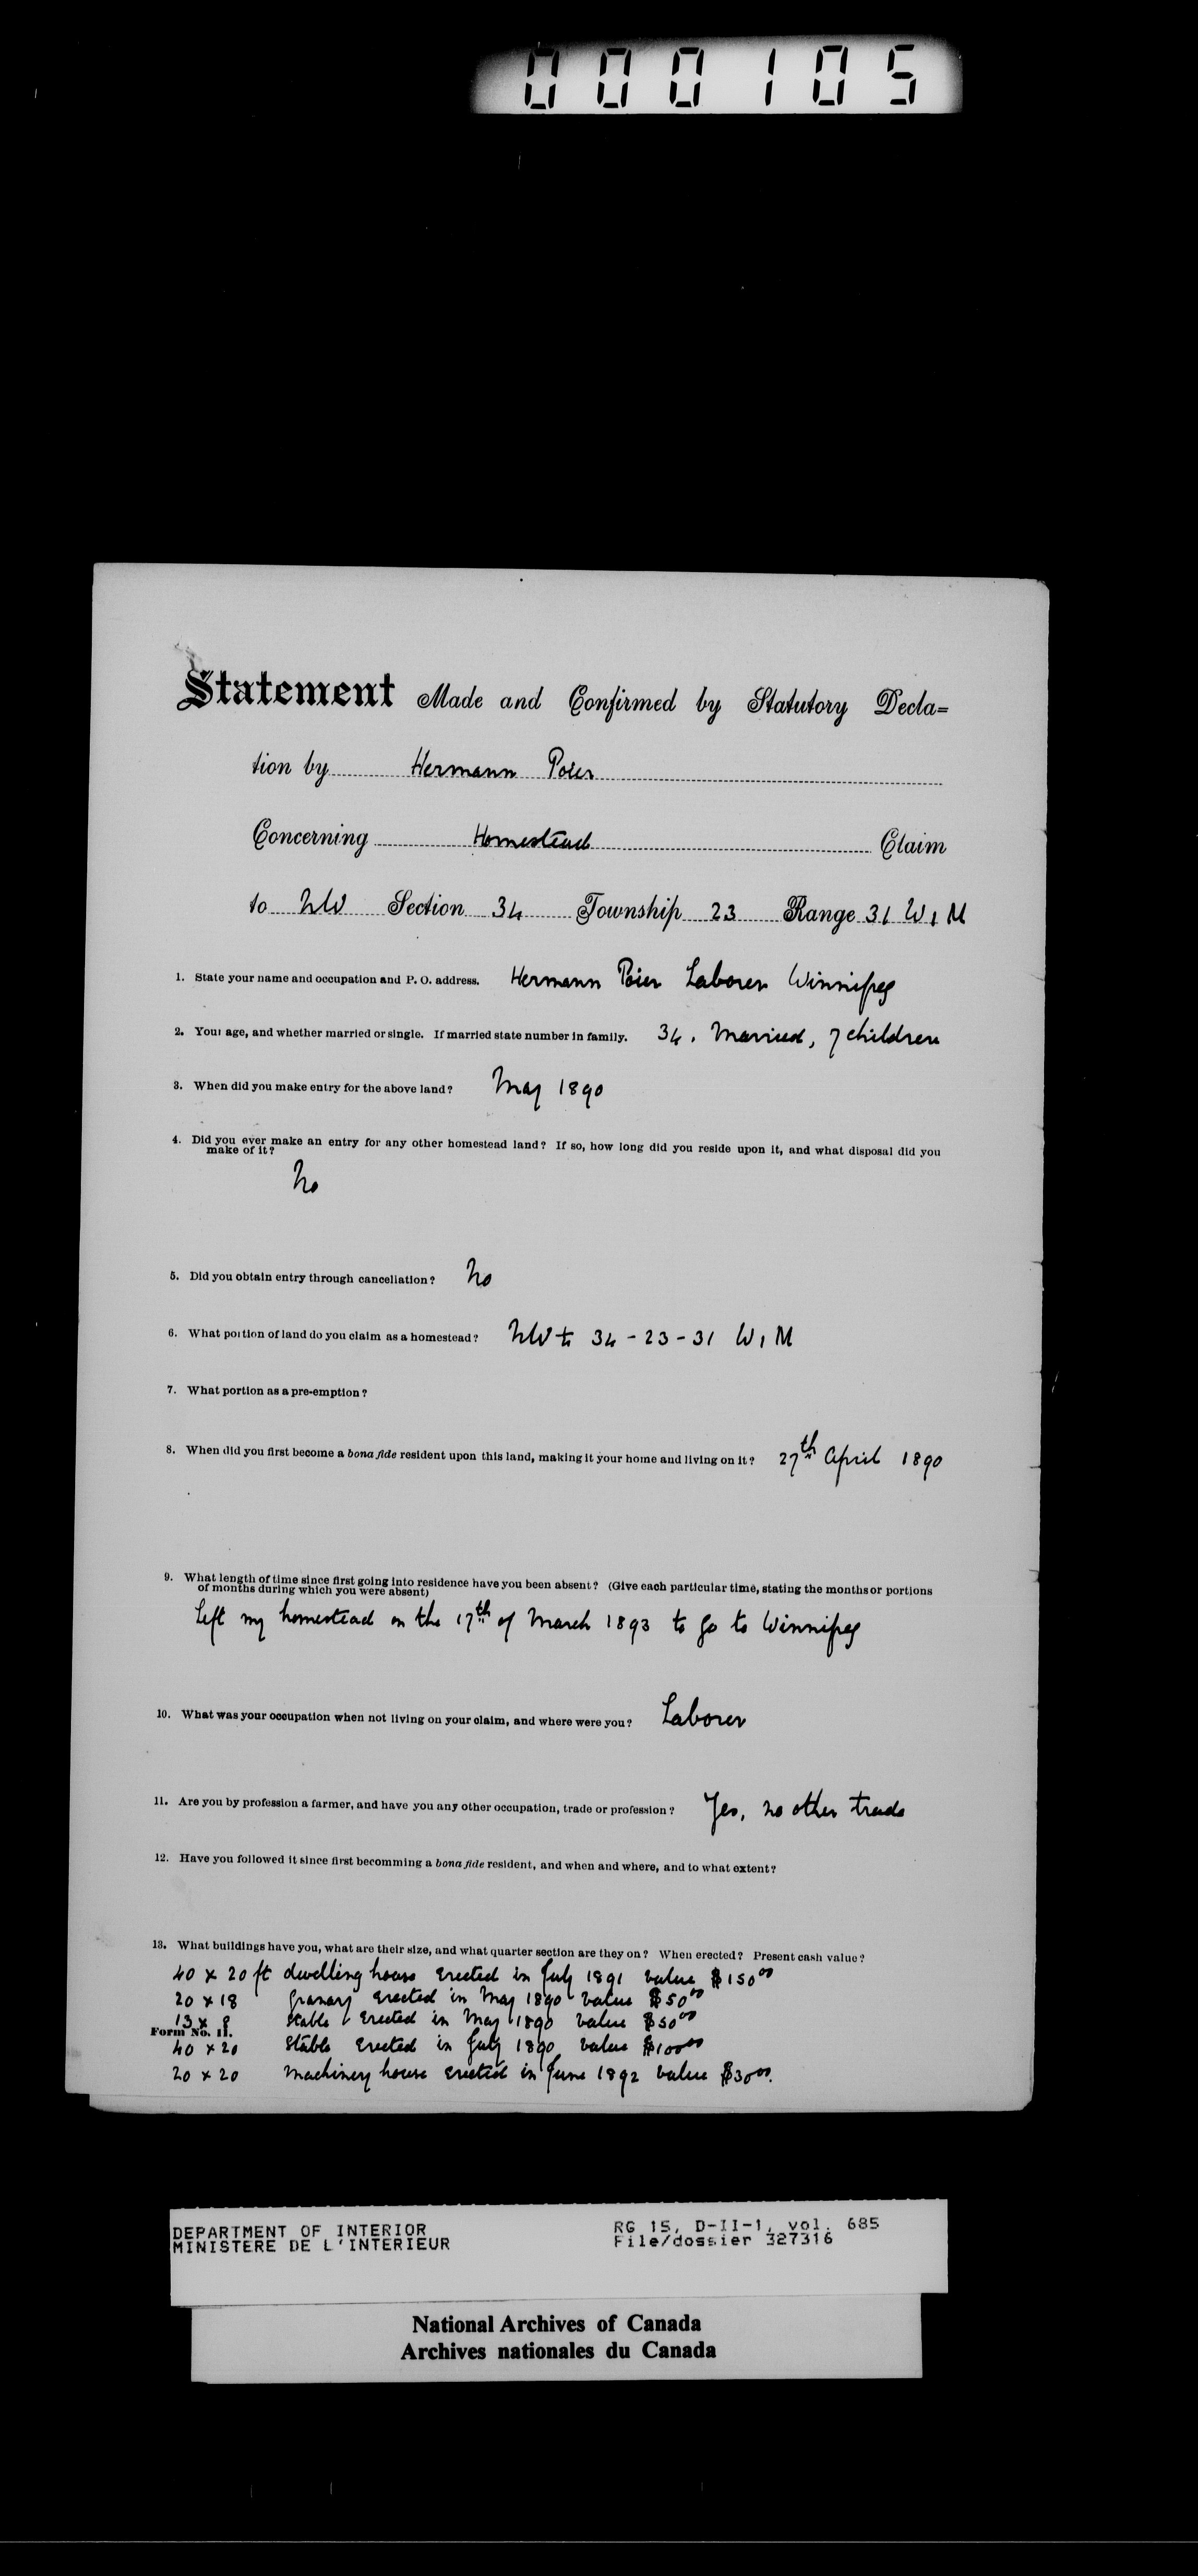 000105
Statement Made and Confirmed by Statutory Decla=
tion by Hermann Poier
Concerning Homestead Claim
to NW Section 34 Township 23 Range 31 W 1 M
1. State your name and occupation and P. O. address. Hermann Poier Laborer Winnipeg
2. Your age, and whether married or single. If married state number in family. 34. Married, 7 children
3. When did you make entry for the above land? May 1890
4. Did you ever make an entry for any other homestead land? If so, how long did you reside upon it, and what disposal did you
make of it?
No
5. Did you obtain entry through cancellation? No
6. What portion of land do you claim as a homestead? NW ¼ 34 - 23 - 31 W 1 M
7. What portion as a pre-emption?
8. When did you first become a bona fide resident upon this land, making it your home and living on it? 27th April 1890
9. What length of time since first going into residence have you been absent? (Give each particular time, stating the months or portions
of months during which you were absent)
Left my homestead on the 17th of March 1893 to go to Winnipeg
10. What was your occupation when not living on your claim, and where were you? Laborer
11. Are you by profession a farmer, and have you any other occupation, trade or profession? Yes, no other trade
12. Have you followed it since first becomming a bona fide resident, and when and where, and to what extent?
13. What buildings have you, what are their size, and what quarter section are they on? When erected? Present cash value?
40 x 20 ft dwelling house erected in July 1891 value $150 00
20 x 18 granary erected in May 1890 value $50 00
13 x 9 stable erected in May 1890 value $50 00
Form No. 11.
40 x 20 stable erected in July 1890 value $100 00
20 x 20 machinery house erected in June 1892 value $30 00.
DEPARTMENT OF INTERIOR RG 15, D-II-1, vol. 685
MINISTERE DE L'INTERIEUR File/dossier 327316
National Archives of Canada
Archives nationales du Canada